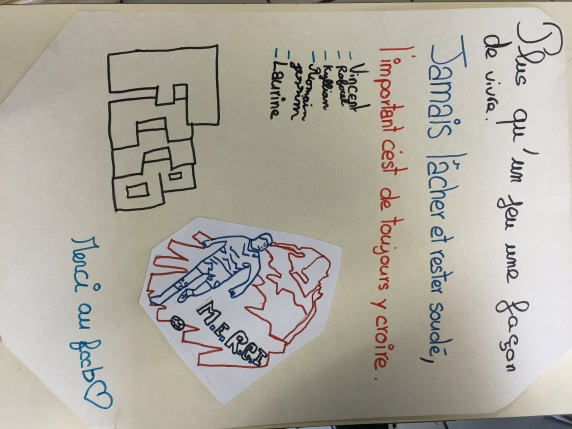 Plus qu'un jeu une façon
de vivre.
Jamais lâcher et rester soudé,
l'important c'est de toujours y croire.
- Vincent
- Rafael
- Kyllian
- Romain
- Laurine
M.E.R.C.I
Merci au fccb♡